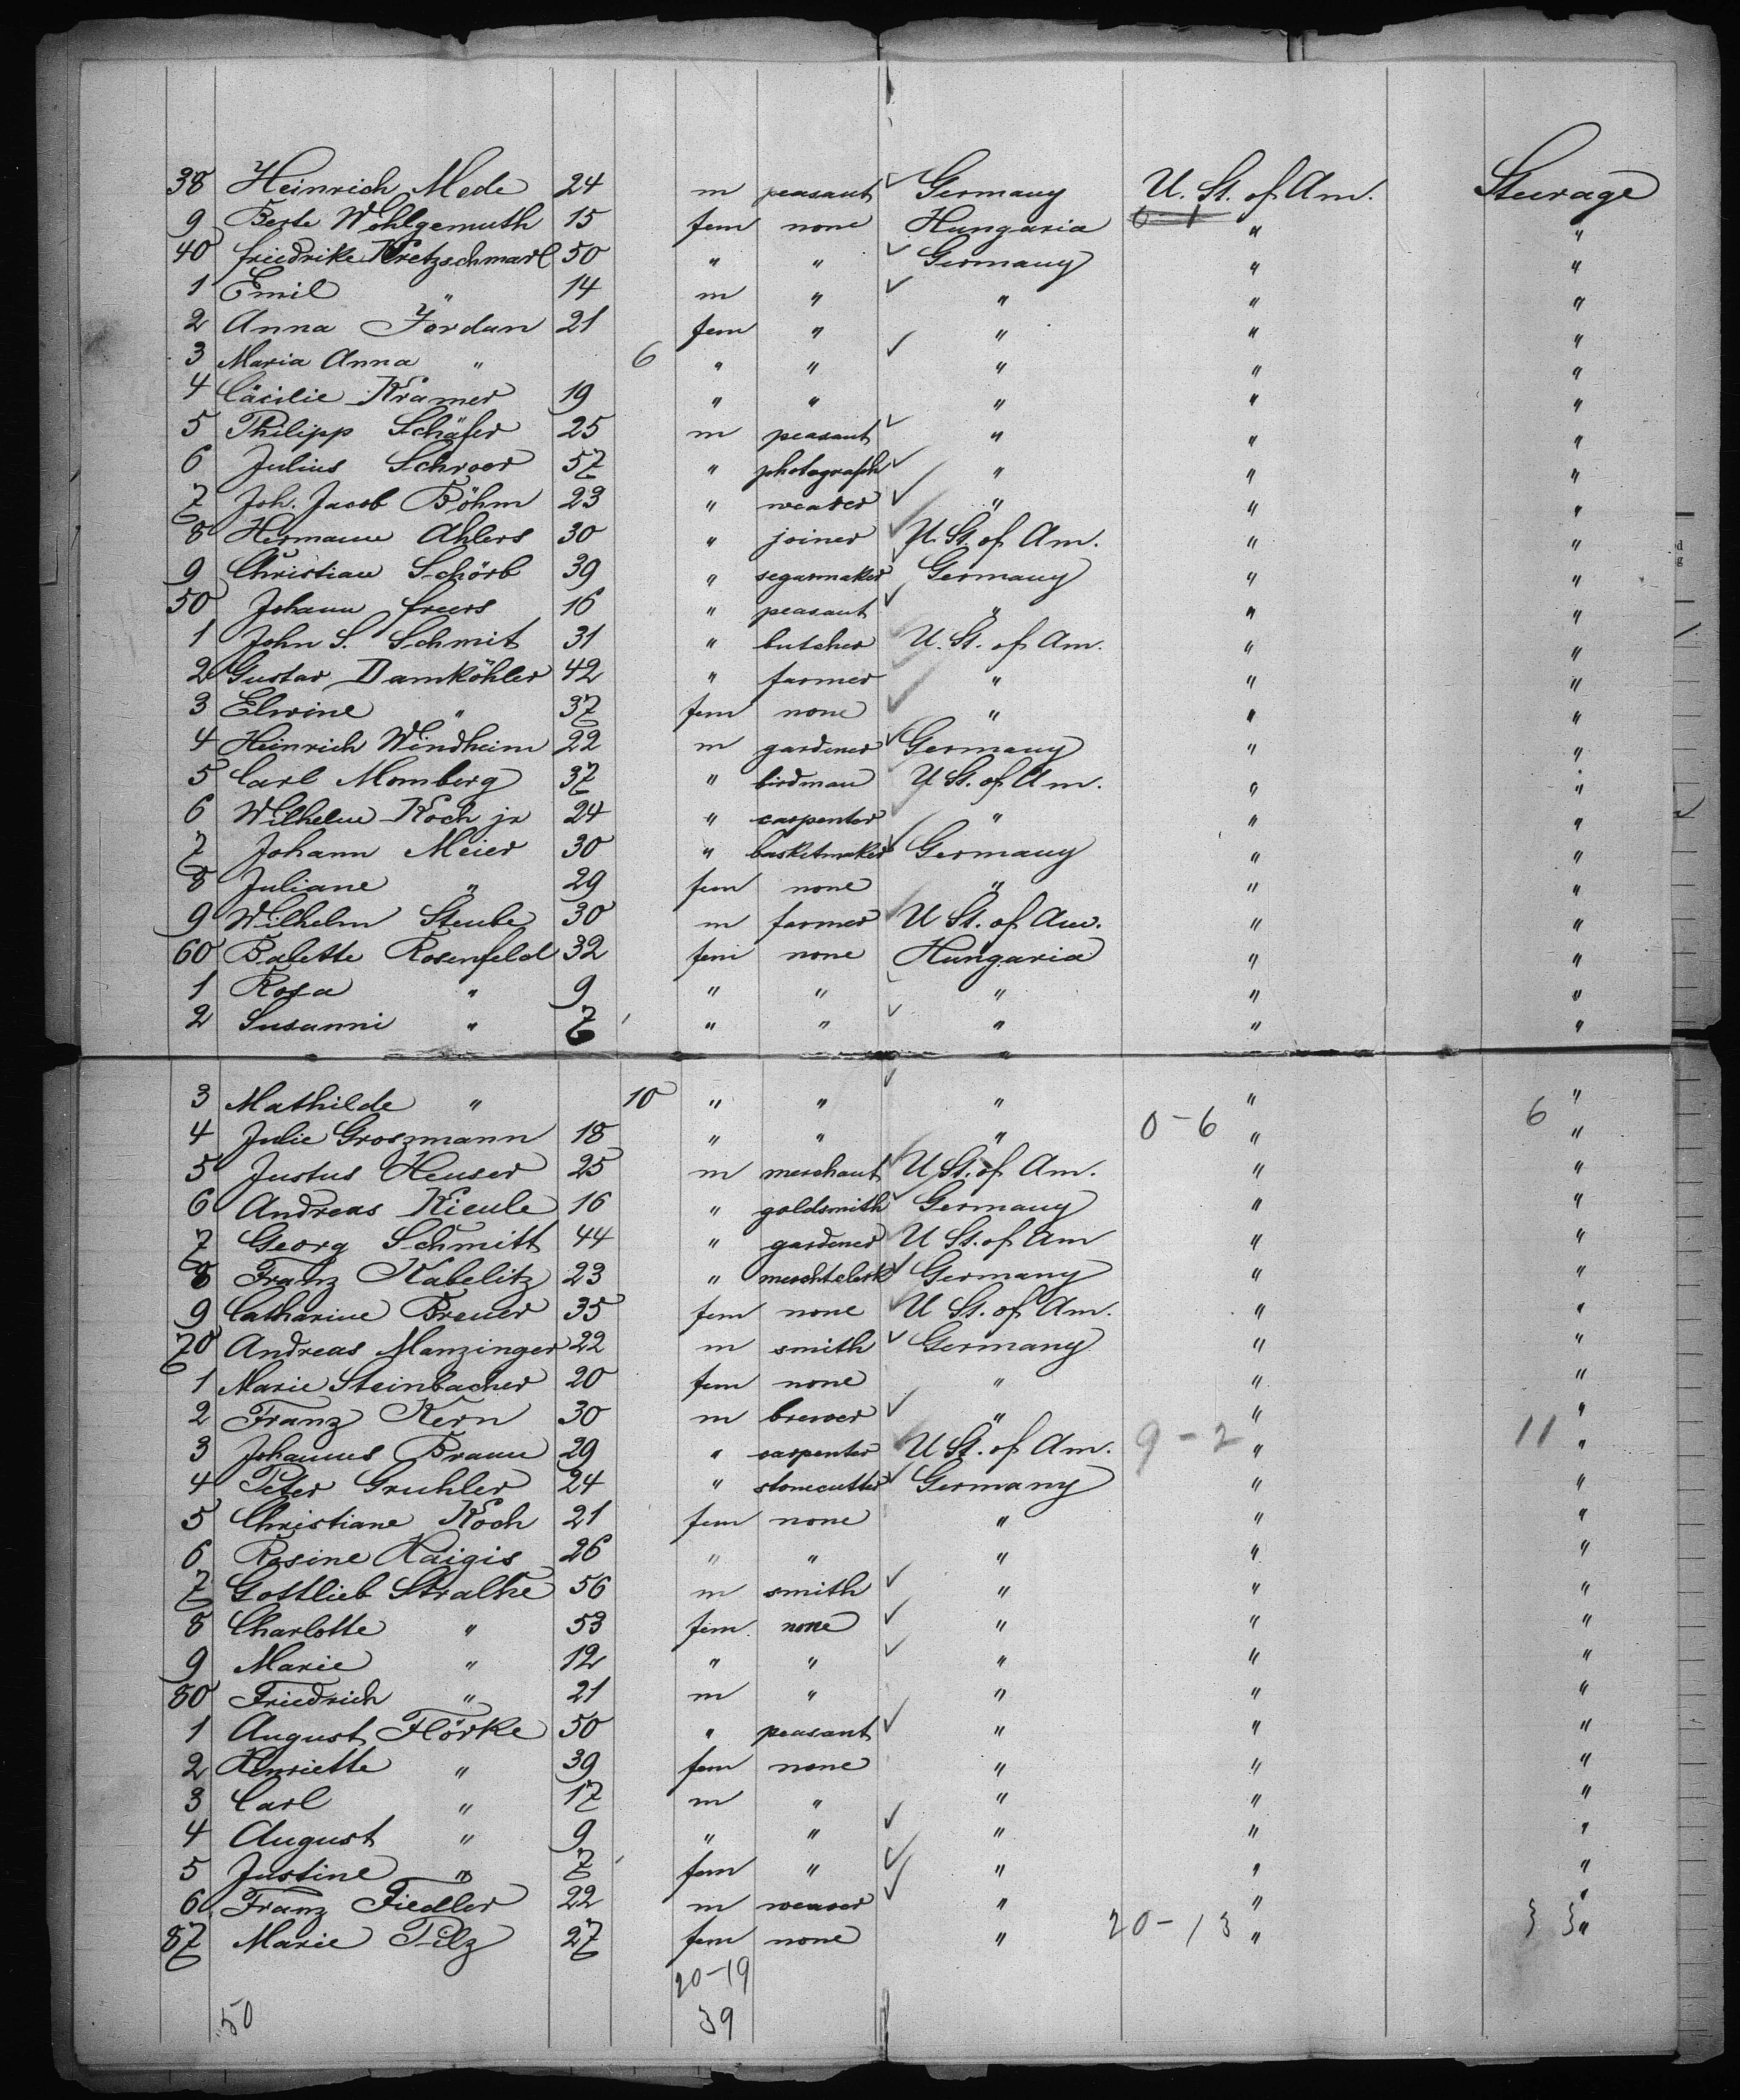 38 Heinrich Mede 24 m peasant Germany U. St. of Am. Steerage
9 Berte Wohlgemuth 15 fem none Hungaria 0-1 " "
40 Friedrike Kretzschmarl 50 " " Germany " "
1 Emil " 14 m " " " "
2 Anna Jordan 21 fem " " " "
3 Maria Anna " 6 " " " " "
4 Cäcilie Kramer 19 " " " " "
5 Philipp Schäfer 25 m peasant " " "
6 Julius Schroer 57 " photograph " " "
7 Joh. Jacob Böhm 23 " weaver " " "
8 Hermann Ahlers 30 " joiner U. St. of Am. " "
9 Christian Schörb 39 " segarmaker Germany " "
50 Johann Freers 16 " peasant " " "
1 John S. Schmit 31 " butcher U. St. of Am. " "
2 Gustav Damköhler 42 " farmer " " "
3 Elwine " 37 fem none " " "
4 Heinrich Windheim 22 m gardener Germany " "
5 Carl Momberg 37 " birdman U St. of Am. " "
6 Wilhelm Koch jr 24 " carpenter " " "
7 Johann Meier 30 " basketmaker Germany " "
8 Juliane " 29 fem none " " "
9 Wilhelm Steube 30 m farmer U St. of Am. " "
60 Babette Rosenfeld 32 fem none Hungaria " "
1 Rosa " 9 " " " " "
2 Susanni " 7 " " " " "
3 Mathilde " 10 " " " " "
4 Julie Groszmann 18 " " " 0-6 " 6 "
5 Justus Heuser 25 m merchant U St. of Am. " "
6 Andreas Kienle 16 " goldsmith Germany " "
7 Georg Schmitt 44 " gardener U St. of Am " "
8 Franz Kabelitz 23 " merchtclerk Germany " "
9 Catharine Breuer 35 fem none U St. of Am. " "
70 Andreas Manzinger 22 m smith Germany " "
1 Marie Steinbacher 20 fem none " " "
2 Franz Kern 30 m brewer " " "
3 Johannes Braun 29 " carpenter U St. of Am. 9-2 " 11 "
4 Peter Gruhler 24 " stonecutter Germany " "
5 Christiane Koch 21 fem none " " "
6 Rosine Haigis 26 " " " " "
7 Gottlieb Stralke 56 m smith " " "
8 Charlotte " 53 fem. none " " "
9 Marie " 12 " " " " "
80 Friedrich " 21 m " " " "
1 August Flörke 50 " peasant " " "
2 Henriette " 39 fem none " " "
3 Carl " 17 m " " " "
4 August " 9 " " " " "
5 Justine " 7 fem " " " "
6 Franz Fiedler 22 m weaver " " "
87 Marie Pilz 27 fem none " 20-13 " 33 "
20-19
50 39